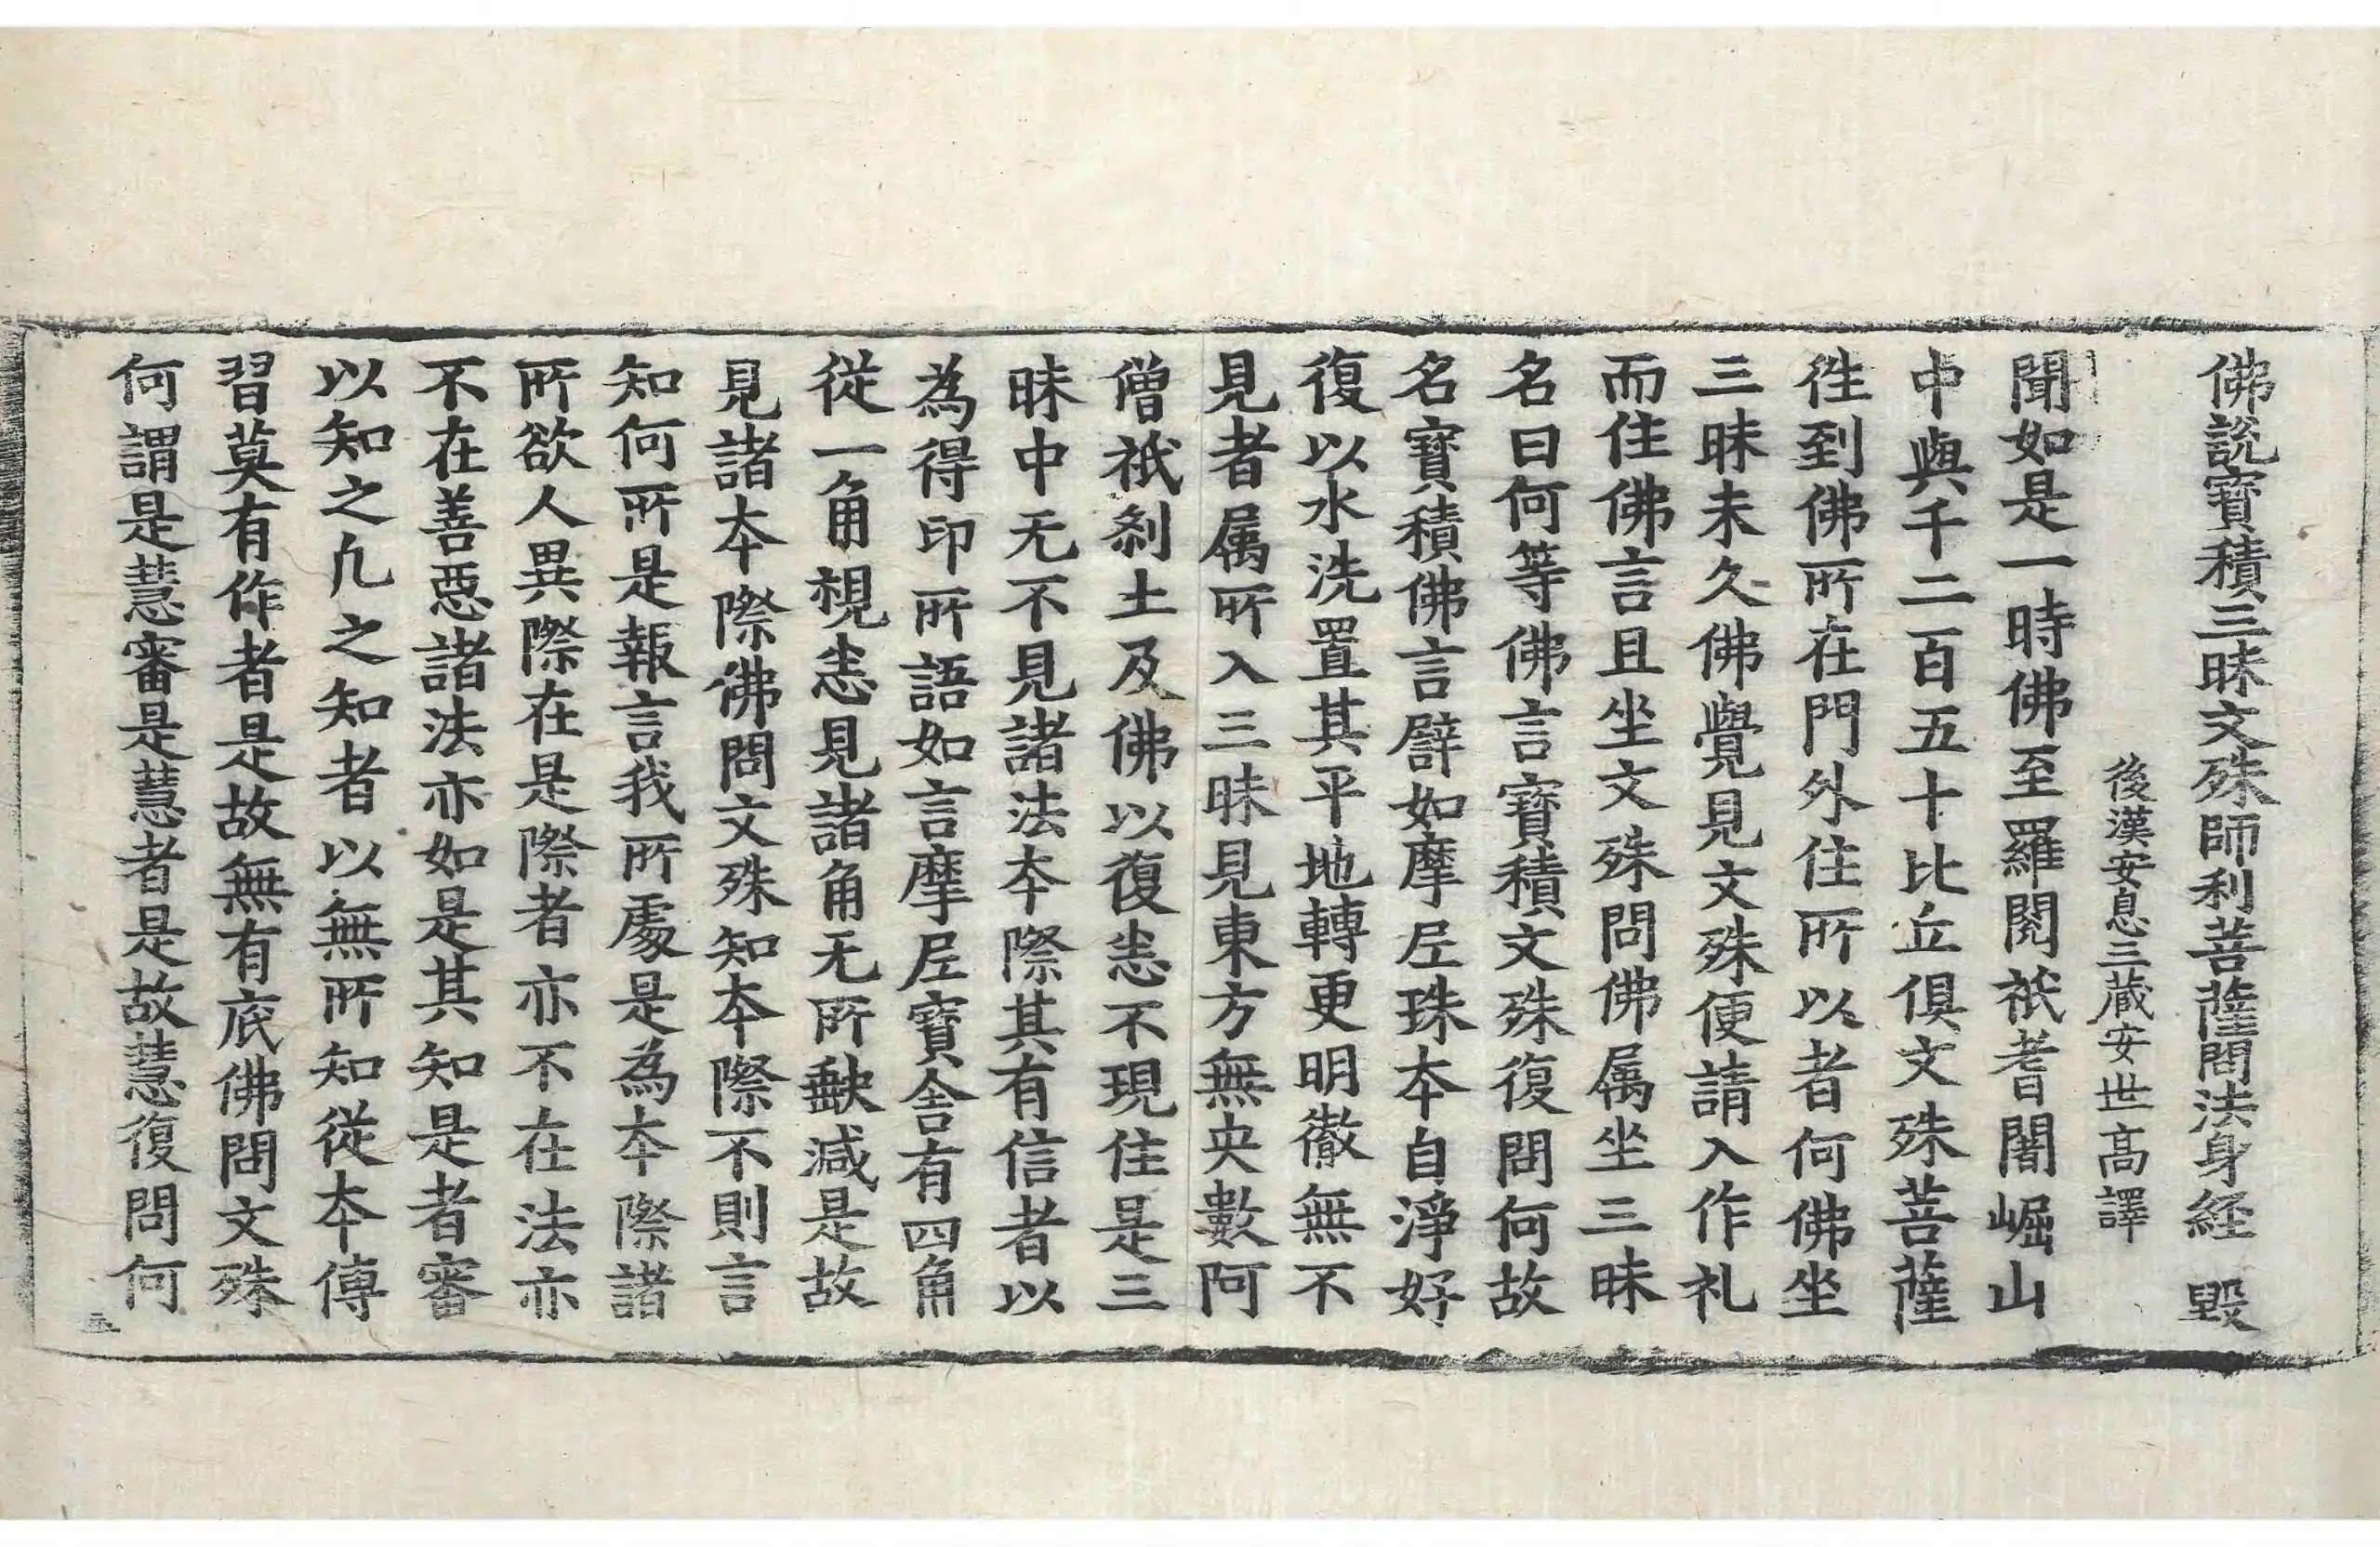 佛說寳積三昧文殊師利菩薩問法身経 毀
後漢安息三藏安世髙譯
聞如是一時佛至羅閱祇耆闍崛山
中與千二百五十比丘俱文殊菩薩
徃到佛所在門外住所以者何佛坐
三昧未久佛覺見文殊便請入作礼
而住佛言且坐文殊問佛属坐三昧
名曰何等佛言寳積文殊復問何故
名寳積佛言辟如摩尼珠本自淨好
復以水洗置其平地轉更明徹無不
見者属所入三昧見東方無央數阿
僧祇刹土及佛以復恚不現住是三
昧中无不見諸法本際其有信者以
為得印所語如言摩尼寳舍有四角
從一角視悉見諸角无所缺減是故
見諸本際佛問文殊知本際不則言
知何所是報言我所處是為本際諸
所欲人異際在是際者亦不在法亦
不在善惡諸法亦如是其知是者審
以知之凡之知者以無所知從本傳
習莫有作者是故無有底佛問文殊
何謂是慧審是慧者是故慧復問何
三